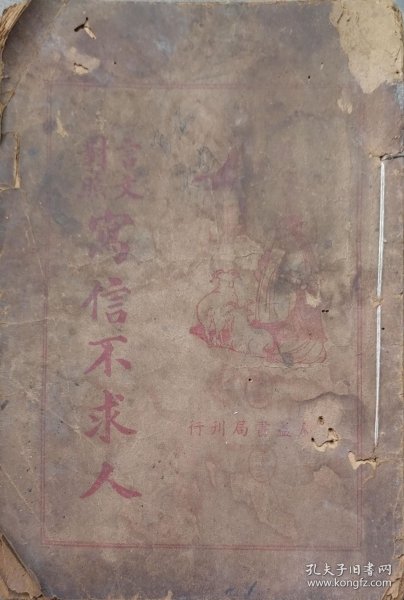 言文
對照
寫信不求人
益書局刊行
孔夫子旧书网
www.kongfz.com